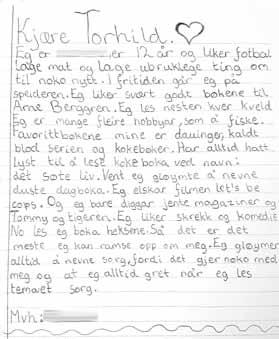 Kjære Torhild.
Eg er er 12 år og liker fotbal
lage mat og lage ubruklege ting om
til noko nytt. I fritiden går eg på
speideren. Eg liker svært godt bøkene til
Arne Berggren. Eg les nesten kver kveld
Eg er mange fleire hobbyar, som å fiske.
Favorittbøkene mine er dauingar, kaldt
blod serien og kokebøker. Har alltid hatt
lyst til å lese kokeboka ved navn:
det søte liv. Vent eg gløymte å nevne
duste dagboka. Eg elskar filmen let's be
cops. Og eg bare diggar jente magaziner og
Tommy og tigeren. Eg liker skrekk og komedie
No les eg boka heksene. Så det er det
meste eg kan ramse opp om meg. Eg gløymer
alltid å nevne sorg, fordi det gjer noko med
meg og at eg alltid gret når eg les
temaet sorg.
Mvh: